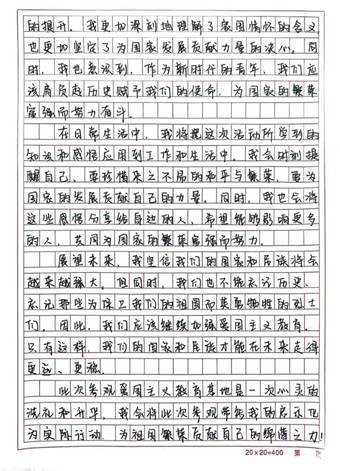 的提升，我更加深刻地理解了家国情怀的含义，
也更加坚定了为国家发展贡献力量的决心。同
时，我也意识到，作为新时代的青年，我们应
该肩负起历史赋予我们的使命，为国家的繁荣
富强而努力奋斗。
在日常生活中，我将把这次活动所学到的
知识和感悟应用到工作和生活中。我会时刻提
醒自己，要珍惜来之不易的和平与繁荣，要为
国家的发展贡献自己的力量。同时，我也会将
这些感悟分享给身边的人，希望能够影响更多
的人，共同为国家的繁荣富强而努力。
展望未来，我坚信我们的国家和民族将会
越来越强大。但同时，我们也不能忘记历史，
忘记那些为保卫我们的祖国而英勇牺牲的烈士
们。因此，我们应该继续加强爱国主义教育，
只有这样，我们的国家和民族才能在未来走得
更远、更强。
此次参观爱国主义教育基地是一次心灵的
洗礼和升华，我会将此次参观带给我的启示化
为实际行动，为祖国繁荣贡献自己的绵薄之力！
20×20=400 第 页